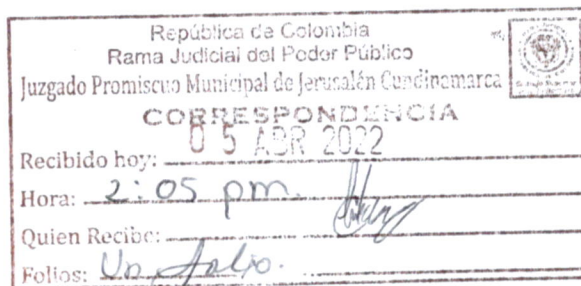 República de Colombia
Rama Judicial del Poder Público
Juzgado Promiscuo Municipal de Jerusalén Cundinamarca
CORRESPONDENCIA
05 ABR 2022
Recibido hoy:
Hora: 2:05 pm.
Quien Recibe:
Folios: Un folio.